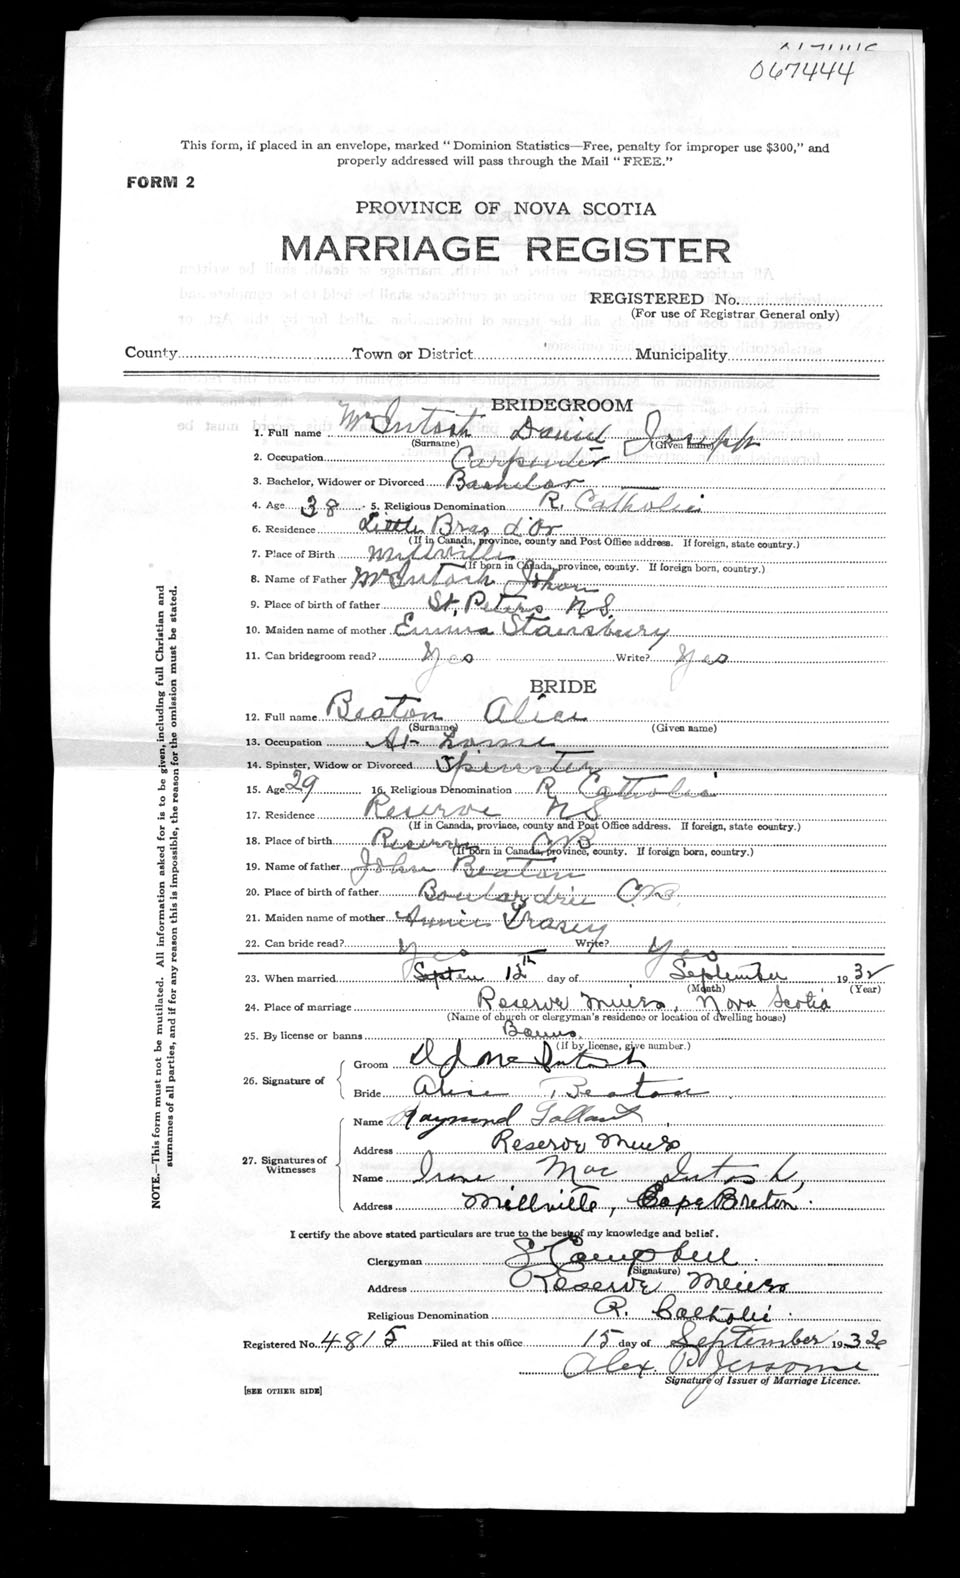 067444
This form, if placed in an envelope, marked "Dominion Statistics—Free, penalty for improper use $300," and
properly addressed will pass through the Mail "FREE."
FORM 2
PROVINCE OF NOVA SCOTIA
MARRIAGE REGISTER
REGISTERED No.
(For use of Registrar General only)
County Town or District Municipality
BRIDEGROOM
1. Full name McIntosh Daniel Joseph
(Surname) (Given name)
2. Occupation Carpenter
3. Bachelor, Widower or Divorced Bachelor
4. Age 38 5. Religious Denomination R. Catholic
6. Residence Little Bras d'Or
(If in Canada, province, county and Post Office address. If foreign, state country.)
7. Place of Birth Millville
(If born in Canada, province, county. If foreign born, country.)
8. Name of Father McIntosh John
9. Place of birth of father St. Peters N.S.
10. Maiden name of mother Emma Stansbury
11. Can bridegroom read? Yes Write? Yes
BRIDE
12. Full name Beaton Alice
(Surname) (Given name)
13. Occupation At home
14. Spinster, Widow or Divorced Spinster
15. Age 29 16. Religious Denomination R Catholic
17. Residence Reserve NS
(If in Canada, province, county and Post Office address. If foreign, state country.)
18. Place of birth Reserve CB
(If born in Canada, province, county. If foreign born, country.)
19. Name of father John Beaton
20. Place of birth of father Boulardrie CB.
21. Maiden name of mother Annie Trasey
22. Can bride read? Yes Write? Yes
23. When married Septem 12th day of September 1932
(Month) (Year)
24. Place of marriage Reserve Mines, Nova Scotia
(Name of church or clergyman's residence or location of dwelling house)
25. By license or banns Banns.
(If by license, give number.)
26. Signature of
Groom D J McIntosh
Bride Alice Beaton
27. Signatures of Witnesses
Name Raymond Gallant
Address Reserve Mines
Name Irene MacIntosh,
Address Millville, Cape Breton.
I certify the above stated particulars are true to the best of my knowledge and belief.
Clergyman Campbell
(Signature)
Address Reserve Mines
Religious Denomination R. Catholic.
Registered No. 4815 Filed at this office 15 day of September 1932
Alex. P Jessome
Signature of Issuer of Marriage Licence.
[SEE OTHER SIDE]
NOTE.—This form must not be mutilated. All information asked for is to be given, including full Christian and
surnames of all parties, and if for any reason this is impossible, the reason for the omission must be stated.